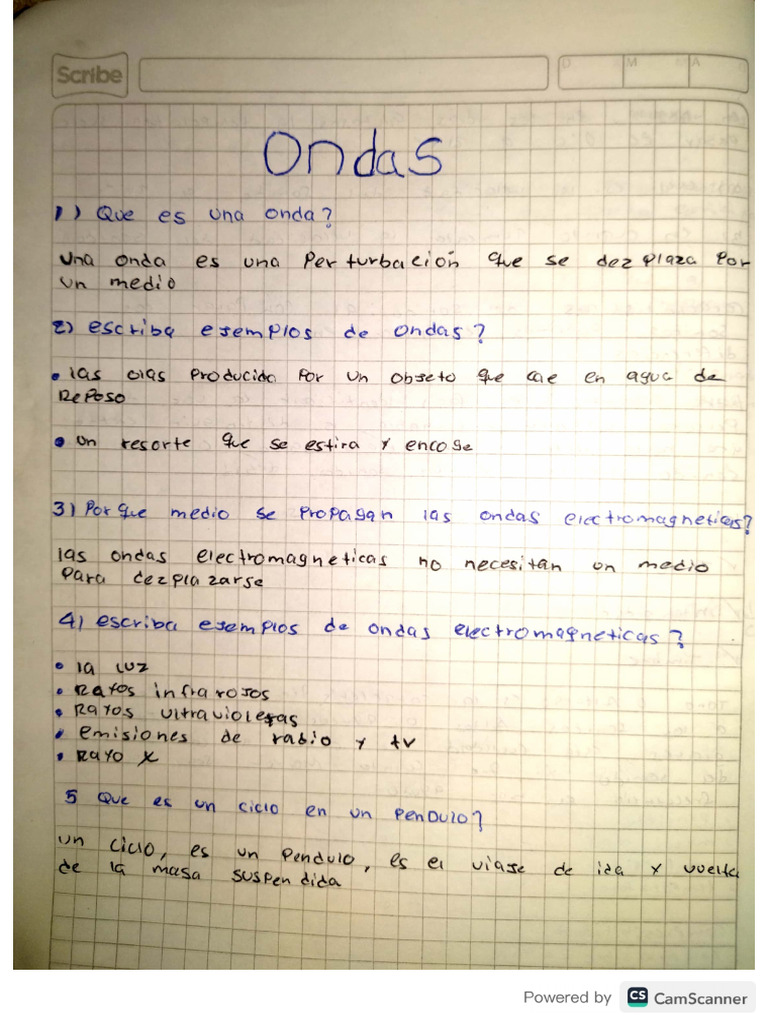 Scribe
D M A
Ondas
1) Que es una onda?
una onda es una Perturbacion que se dezplaza Por
un medio
2) escriba esemplos de ondas?
• las olas Producida Por un obseto que cae en agua de
Reposo
• un resorte que se estira y encose
3) Por que medio se Propagan las ondas electromagneticas?
las ondas electromagneticas no necesitan un medio
Para dezplazarse
4) escriba esemplos de ondas electromagneticas?
• la luz
• Rayos infrarosos
• Rayos ultravioletas
• emisiones de radio y tv
• Rayo x
5 Que es un ciclo en un Pendulo?
un ciclo, es un Pendulo, es el viase de ida y vuelta
de la masa suspendida
Powered by CS CamScanner